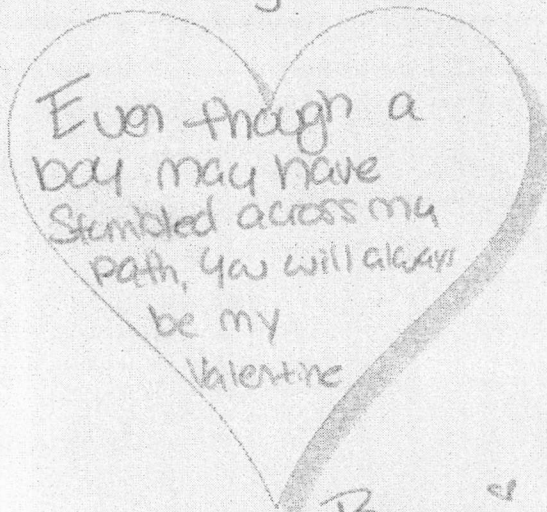 Even though a
boy may have
Stumbled across my
path, you will always
be my
Valentine